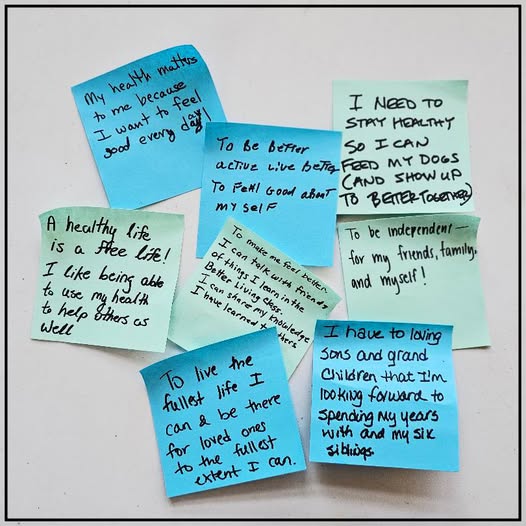 My health matters
to me because
I want to feel
good every day!
To Be Better
active live better
To Feel Good about
my self
I NEED TO
STAY HEALTHY
SO I CAN
FEED MY DOGS
(AND SHOW UP
TO BETTER TOGETHER)
A healthy life
is a free life!
I like being able
to use my health
to help others as
well
To make me feel better
I can talk with friends
of things I learn in the
Better Living class.
I can share my knowledge
I have learned to others
To be independent —
for my friends, family,
and myself!
To live the
fullest life I
can & be there
for loved ones
to the fullest
extent I can.
I have to loving
sons and grand
children that I'm
looking forward to
spending my years
with and my six
siblings.